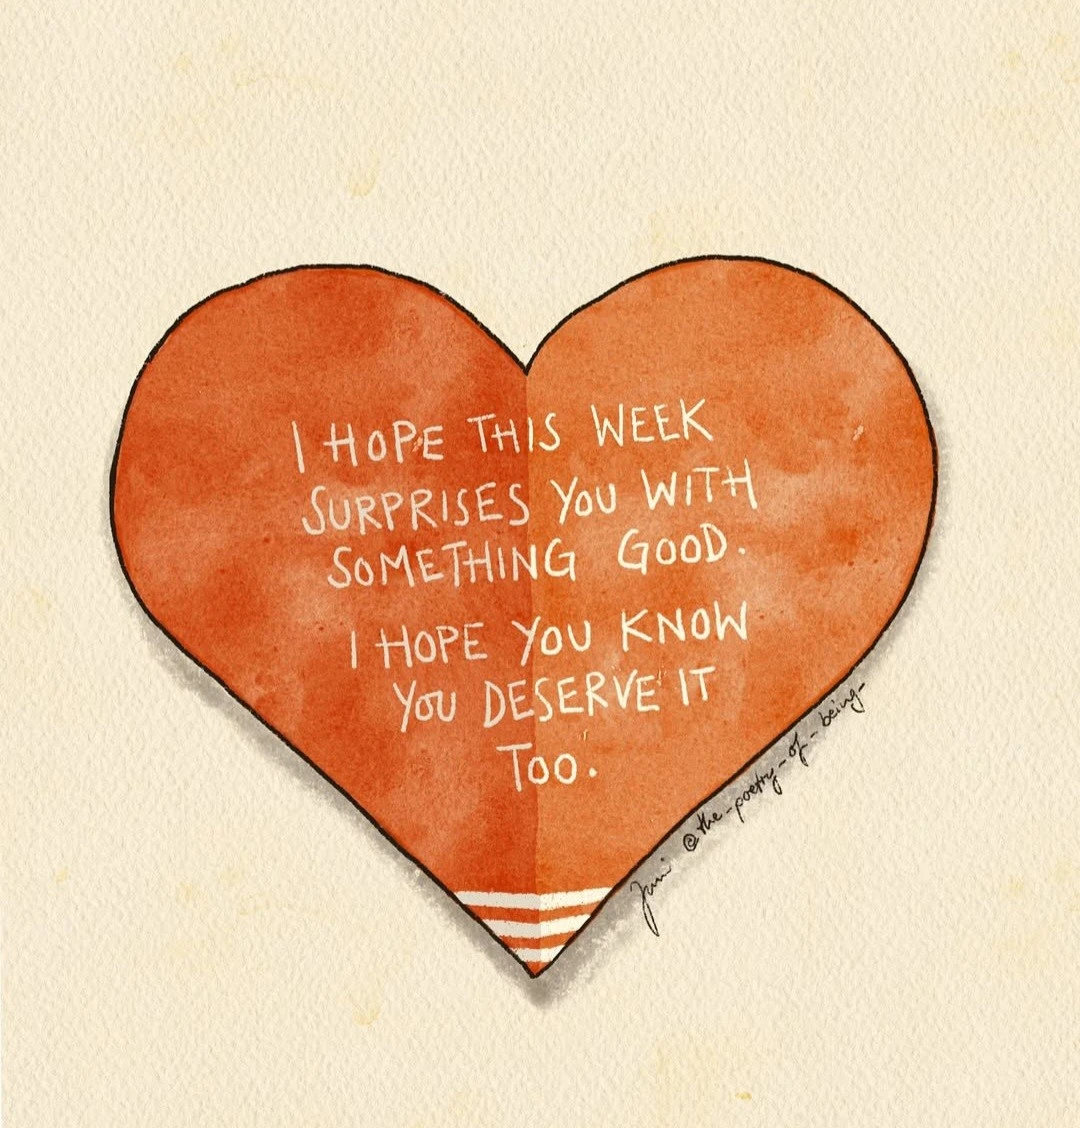 I HOPE THIS WEEK
SURPRISES YOU WITH
SOMETHING GOOD.
I HOPE YOU KNOW
YOU DESERVE IT
TOO.
@the-poetry-of-being-